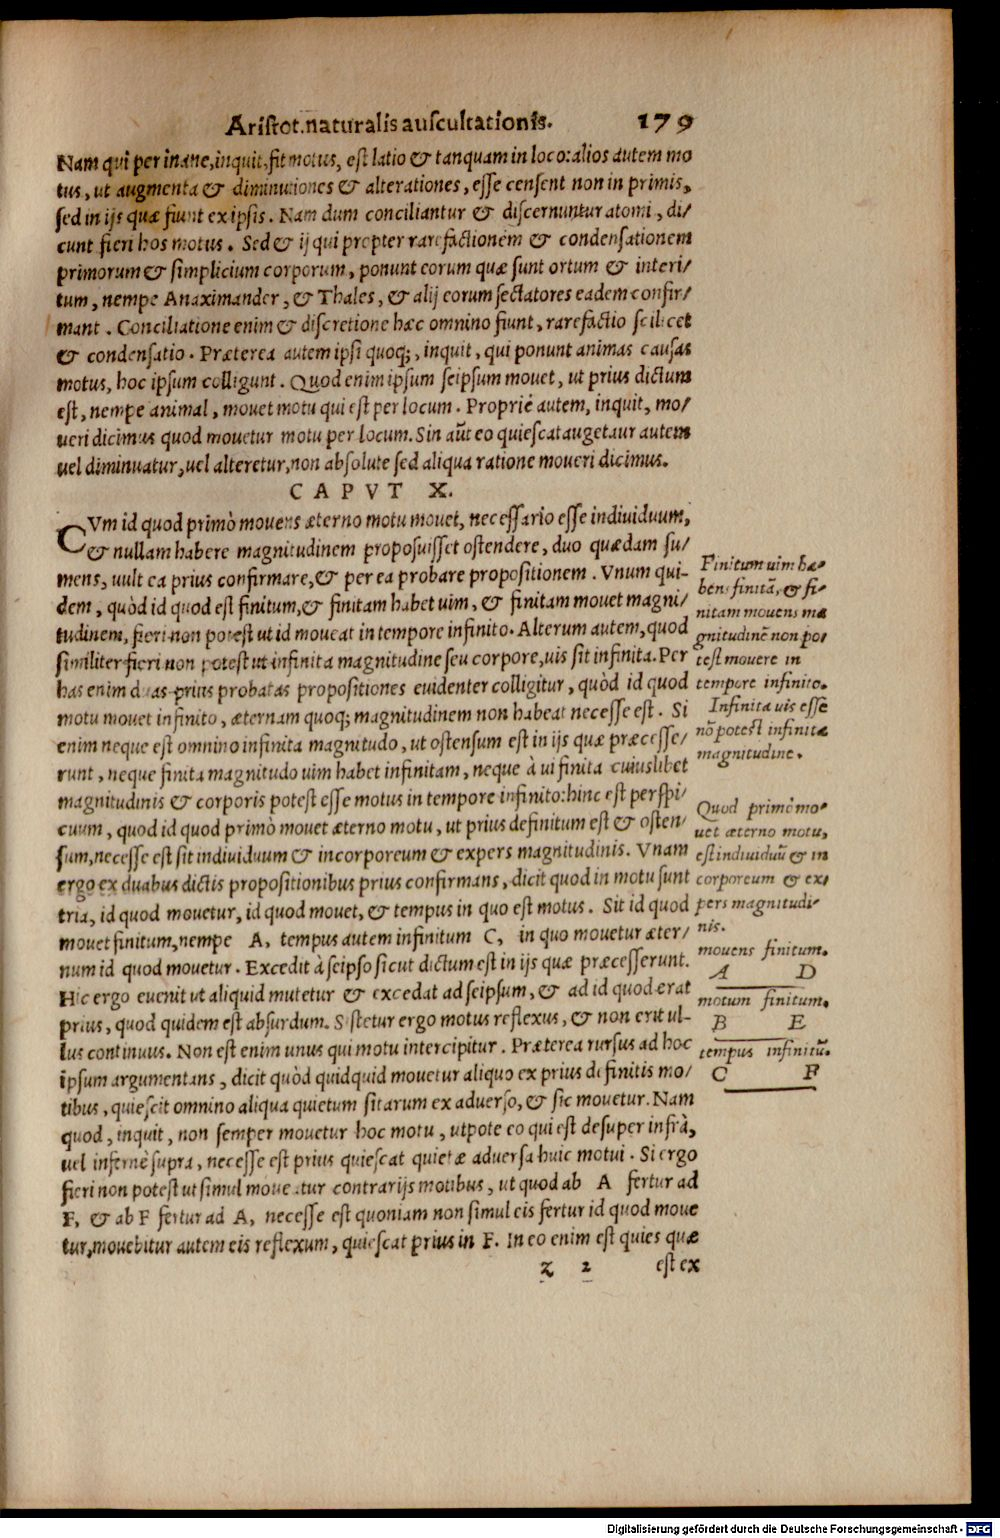 Aristot. naturalis auscultationis. 179
Nam qui per inane, inquit, fit motus, est latio & tanquam in loco: alios autem mo
tus, ut augmenta & diminutiones & alterationes, esse censent non in primis,
sed in ijs quæ fiunt ex ipsis. Nam dum conciliantur & discernuntur atomi, di/
cunt fieri hos motus. Sed & ij qui propter rarefactionem & condensationem
primorum & simplicium corporum, ponunt eorum quæ sunt ortum & interi/
tum, nempe Anaximander, & Thales, & alij eorum sectatores eadem confir/
mant. Conciliatione enim & discretione hæc omnino fiunt, rarefactio scilicet
& condensatio. Præterea autem ipsi quoq;, inquit, qui ponunt animas causas
motus, hoc ipsum colligunt. Quod enim ipsum seipsum mouet, ut prius dictum
est, nempe animal, mouet motu qui est per locum. Propriè autem, inquit, mo/
ueri dicimus quod mouetur motu per locum. Sin aũt eo quiescat augetaur autem
uel diminuatur, uel alteretur, non absolute sed aliqua ratione moueri dicimus.
CAPVT X.
CVm id quod primò mouens æterno motu mouet, necessario esse indiuiduum,
& nullam habere magnitudinem proposuisset ostendere, duo quædam su/
mens, uult ea prius confirmare, & per ea probare propositionem. Vnum qui-
dem, quòd id quod est finitum, & finitam habet uim, & finitam mouet magni/
tudinem, fieri non potest ut id moueat in tempore infinito. Alterum autem, quod
similiter fieri non potest ut infinita magnitudine seu corpore, uis sit infinita. Per
has enim duas prius probatas propositiones euidenter colligitur, quòd id quod
motu mouet infinito, æternam quoq; magnitudinem non habeat necesse est. Si
enim neque est omnino infinita magnitudo, ut ostensum est in ijs quæ præcesse/
runt, neque finita magnitudo uim habet infinitam, neque à ui finita cuiuslibet
magnitudinis & corporis potest esse motus in tempore infinito: hinc est perspi/
cuum, quod id quod primò mouet æterno motu, ut prius definitum est & osten/
sum, necesse est sit indiuiduum & incorporeum & expers magnitudinis. Vnam
ergo ex duabus dictis propositionibus prius confirmans, dicit quod in motu sunt
tria, id quod mouetur, id quod mouet, & tempus in quo est motus. Sit id quod
mouet finitum, nempe A, tempus autem infinitum C, in quo mouetur æter/
num id quod mouetur. Excedit à seipso sicut dictum est in ijs quæ præcesserunt.
Hic ergo euenit ut aliquid mutetur & excedat ad seipsum, & ad id quod erat
prius, quod quidem est absurdum. Sistetur ergo motus reflexus, & non erit ul-
lus continuus. Non est enim unus qui motu intercipitur. Præterea rursus ad hoc
ipsum argumentans, dicit quòd quidquid mouetur aliquo ex prius definitis mo/
tibus, quiescit omnino aliqua quietum sitarum ex aduerso, & sic mouetur. Nam
quod, inquit, non semper mouetur hoc motu, utpote eo qui est desuper infrà,
uel infernè supra, necesse est prius quiescat quietæ aduersa huic motui. Si ergo
fieri non potest ut simul moueatur contrarijs motibus, ut quod ab A fertur ad
F, & ab F fertur ad A, necesse est quoniam non simul eis fertur id quod moue
tur, mouebitur autem eis reflexum, quiescat prius in F. In eo enim est quies quæ
z 2 est ex
Finitum uim ha-
bens finitã, & fi-
nitam mouens ma
gnitudinẽ non po/
test mouere in
tempore infinito.
Infinita uis esse
nõ potest infinitæ
magnitudine.
Quod primò mo-
uet æterno motu,
est indiuiduũ & in
corporeum & ex/
pers magnitudi-
nis.
mouens finitum.
A D
motum finitum.
B E
tempus infinitũ.
C F
Digitalisierung gefördert durch die Deutsche Forschungsgemeinschaft - DFG